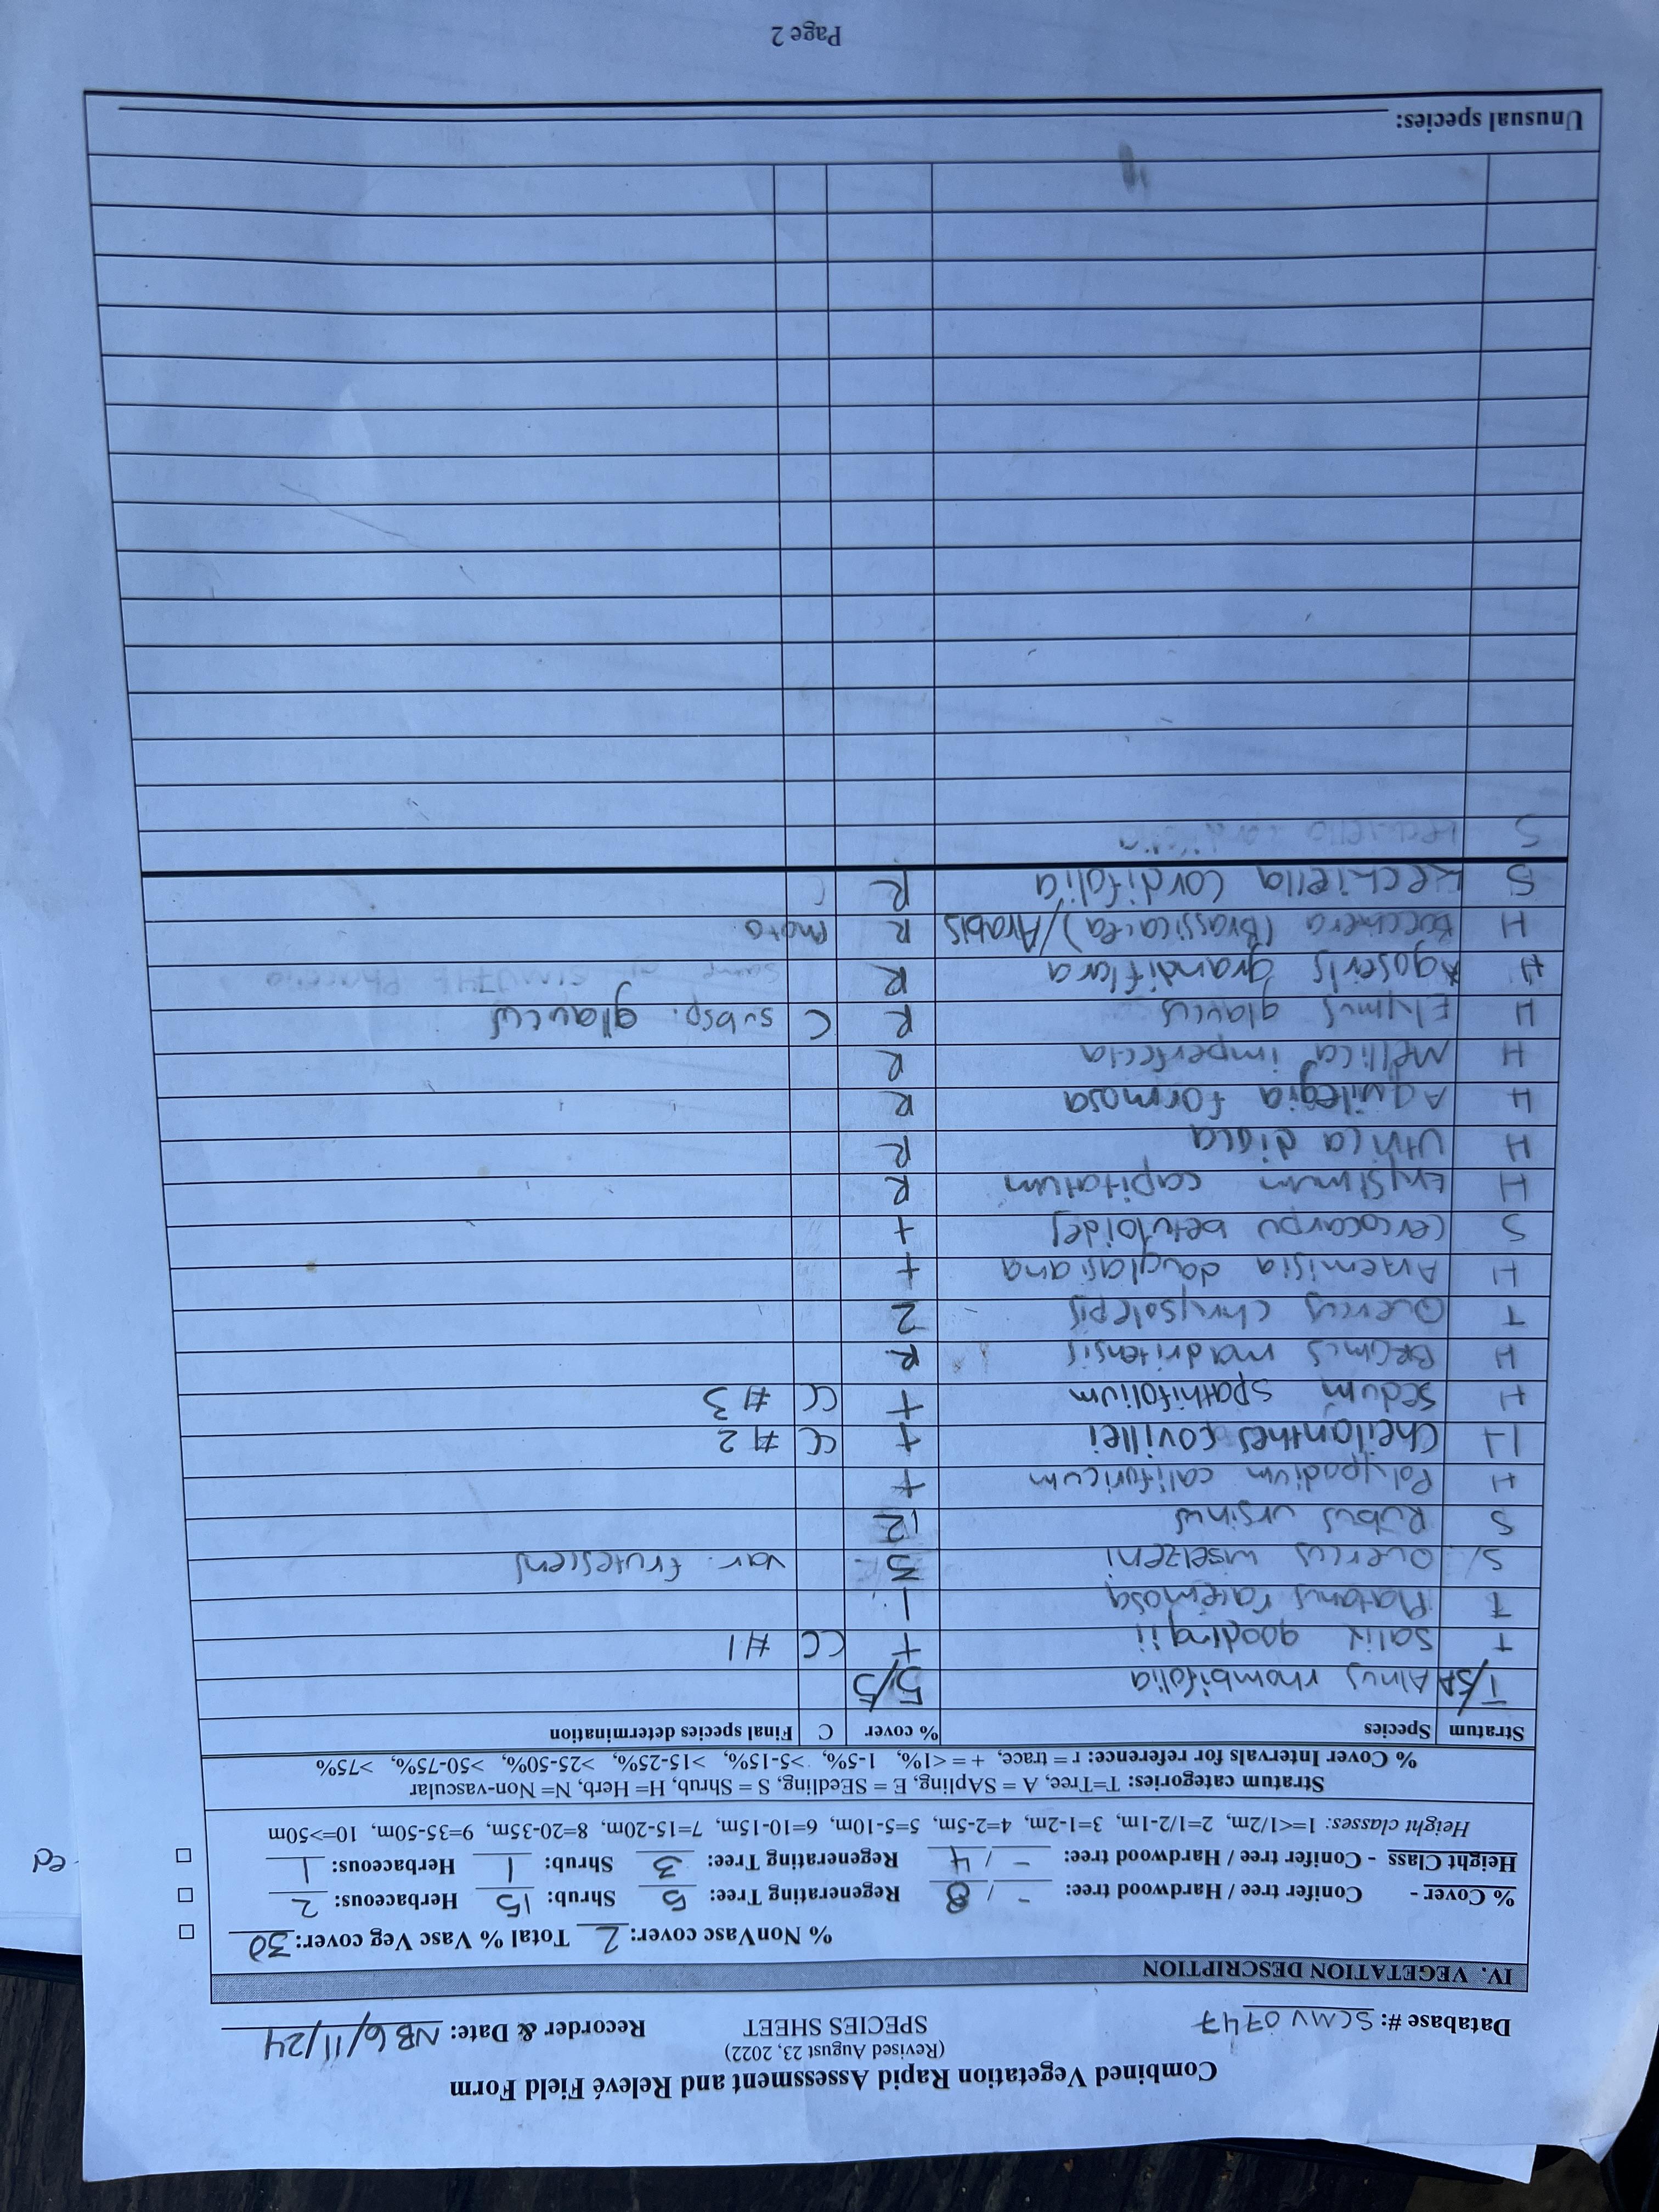 Combined Vegetation Rapid Assessment and Relevé Field Form
(Revised August 23, 2022)
Database #: SCMV0747 SPECIES SHEET Recorder & Date: NB 6/11/24
IV. VEGETATION DESCRIPTION
% NonVasc cover: 2 Total % Vasc Veg cover: 30 □
% Cover - Conifer tree / Hardwood tree: - / 8 Regenerating Tree: 5 Shrub: 15 Herbaceous: 2 □
Height Class - Conifer tree / Hardwood tree: - / 4 Regenerating Tree: 3 Shrub: 1 Herbaceous: 1 □
Height classes: 1=<1/2m, 2=1/2-1m, 3=1-2m, 4=2-5m, 5=5-10m, 6=10-15m, 7=15-20m, 8=20-35m, 9=35-50m, 10=>50m
Stratum categories: T=Tree, A = SApling, E = SEedling, S = Shrub, H= Herb, N= Non-vascular
% Cover Intervals for reference: r = trace, + = <1%, 1-5%, >5-15%, >15-25%, >25-50%, >50-75%, >75%
Stratum Species % cover C Final species determination
T/SA Alnus rhombifolia 5/5
T Salix gooddingii + CC #1
T Platanus racemosa 1
S Quercus wislizeni 3 var. frutescens
S Rubus ursinus 12
H Polypodium californicum +
H Cheilanthes covillei + CC #2
H Sedum spathifolium + CC #3
H Bromus madritensis R
T Quercus chrysolepis 2
H Artemisia douglasiana +
S Cercocarpu betuloides +
H Erysimum capitatum R
H Urtica dioica R
H Aquilegia formosa R
H Mellica imperfecta R
H Elymus glaucus R C subsp. glaucus
H Agoseris grandiflora R same as
H (Brassicacea)/Arabis R photo
S Keckiella cordifolia R C
S Keckiella cordifolia
Unusual species:
Page 2
ed